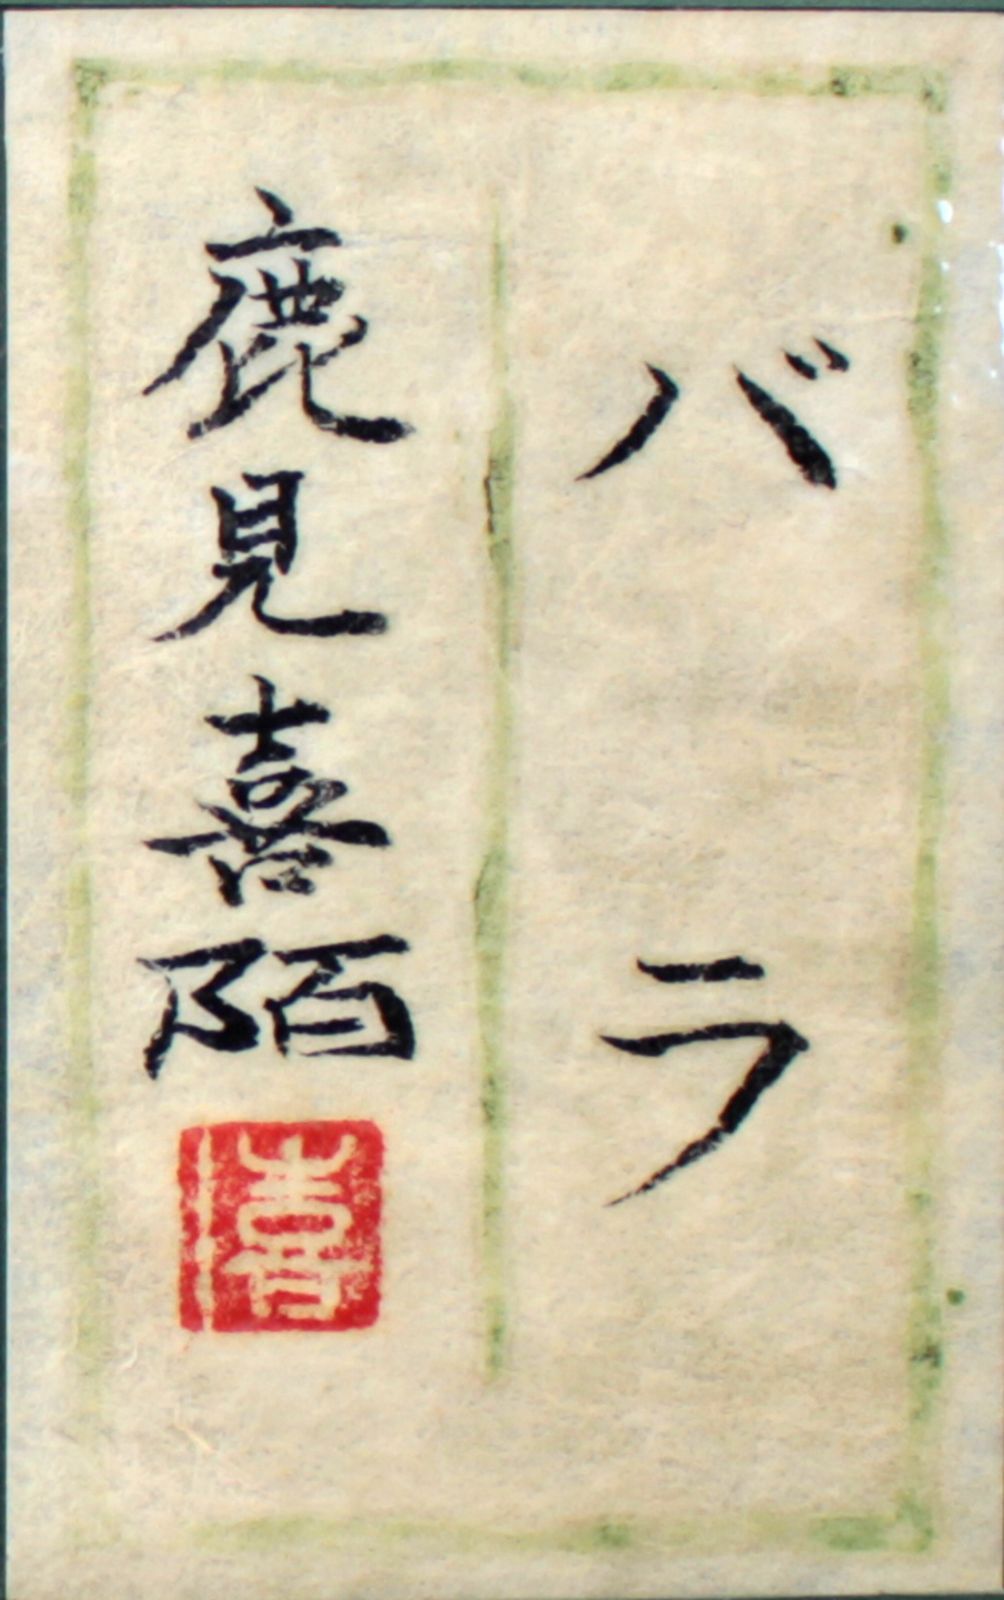 バラ
鹿見喜陌
喜